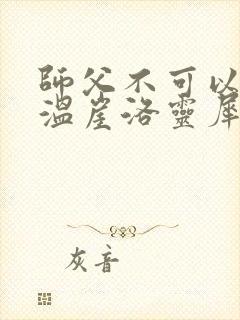 師父不可以
溫崖洛靈犀
灰音